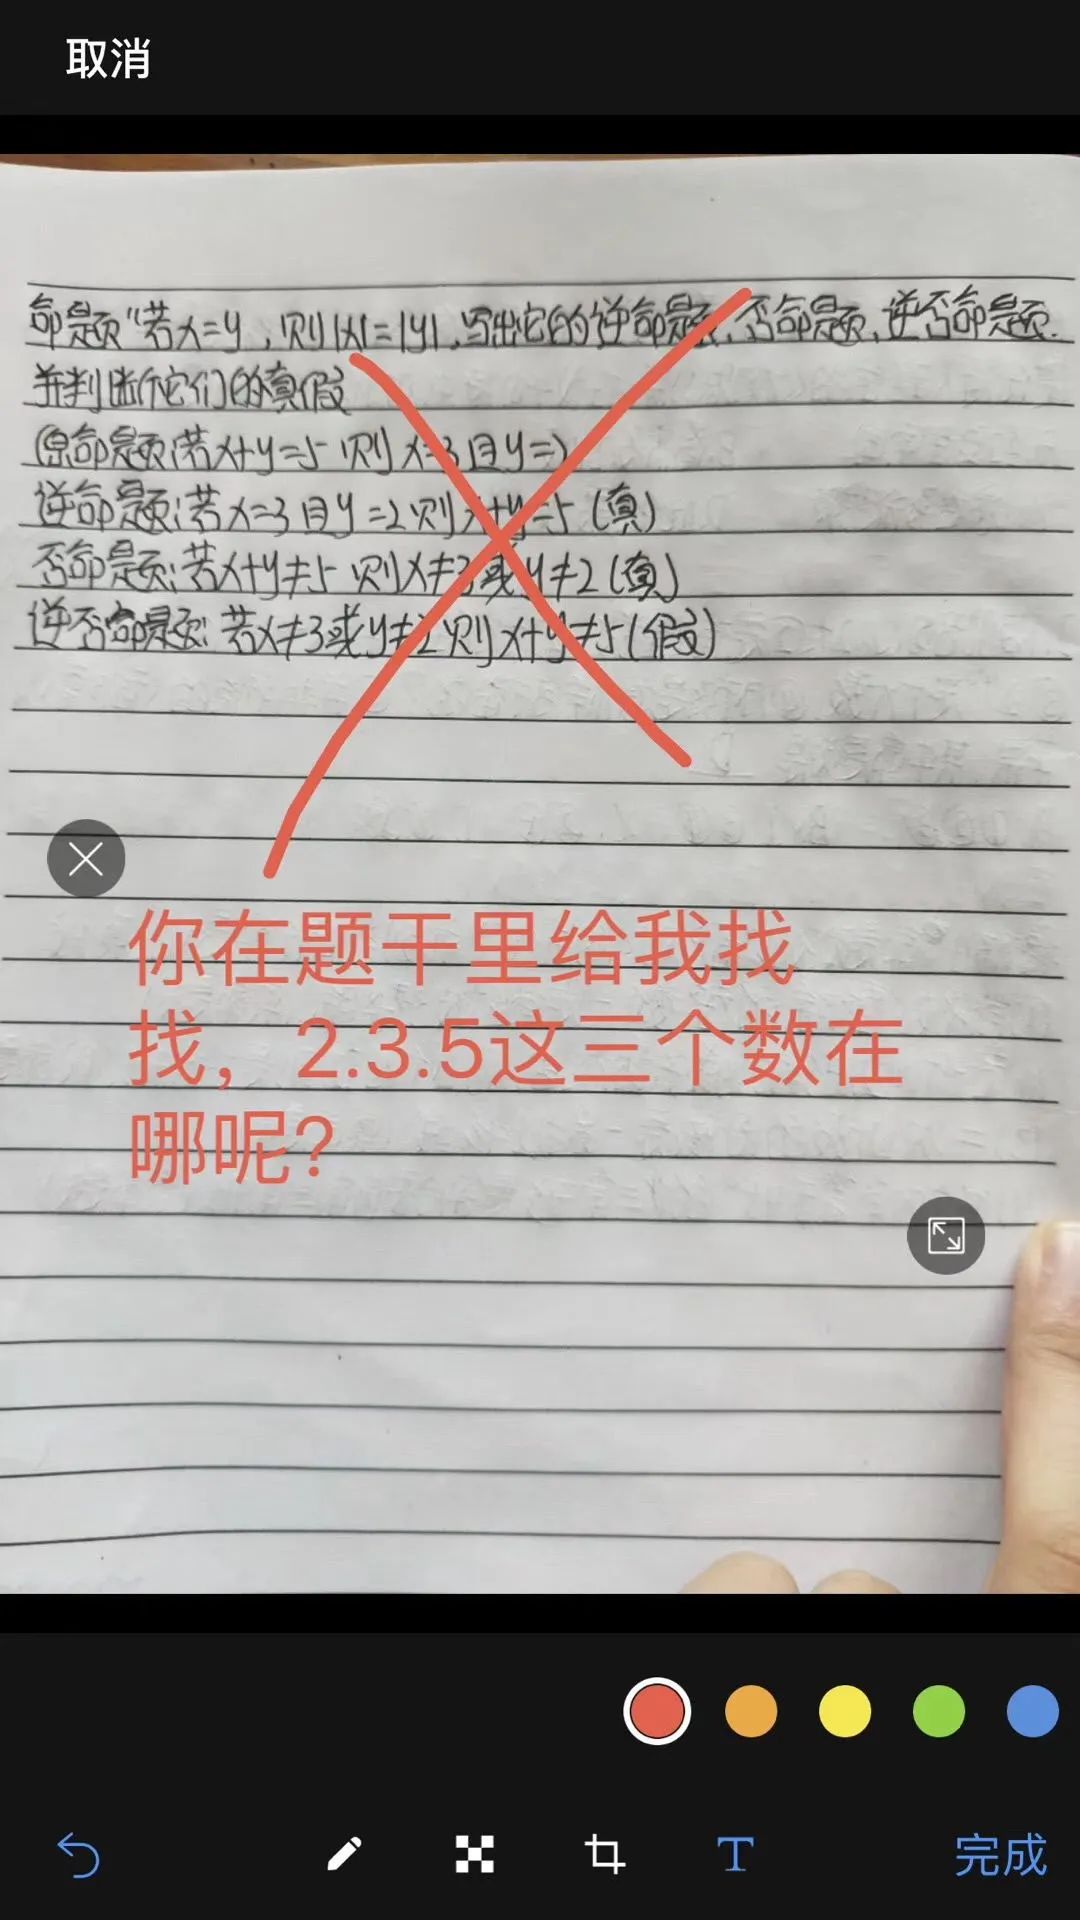 取消
命题“若x=y,则|x|=|y|,写出它的逆命题、否命题、逆否命题.
并判断它们的真假
原命题:若x+y=5 则 x=3且y=2
逆命题:若x=3且y=2则x+y=5(真)
否命题:若x+y≠5 则x≠3或y≠2(真)
逆否命题:若x≠3或y≠2则x+y≠5(假)
你在题干里给我找
找，2.3.5这三个数在
哪呢？
T
完成